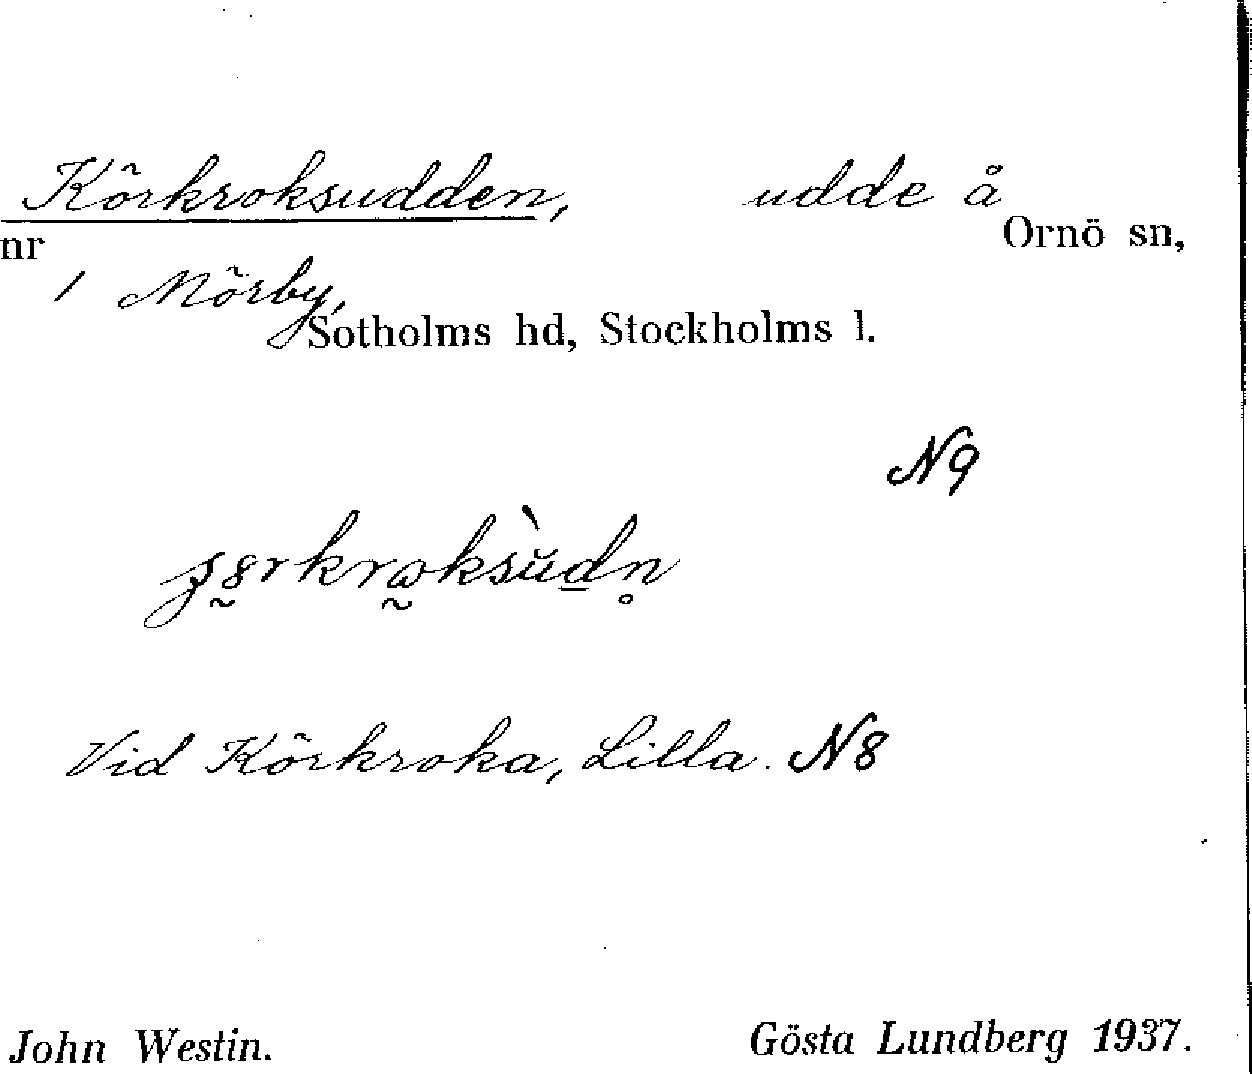 Körkroksudden, udde å
nr Ornö sn,
1 Mörby,
Sotholms hd, Stockholms l.
N9
Vid Körkroka, Lilla. N8
John Westin. Gösta Lundberg 1937.